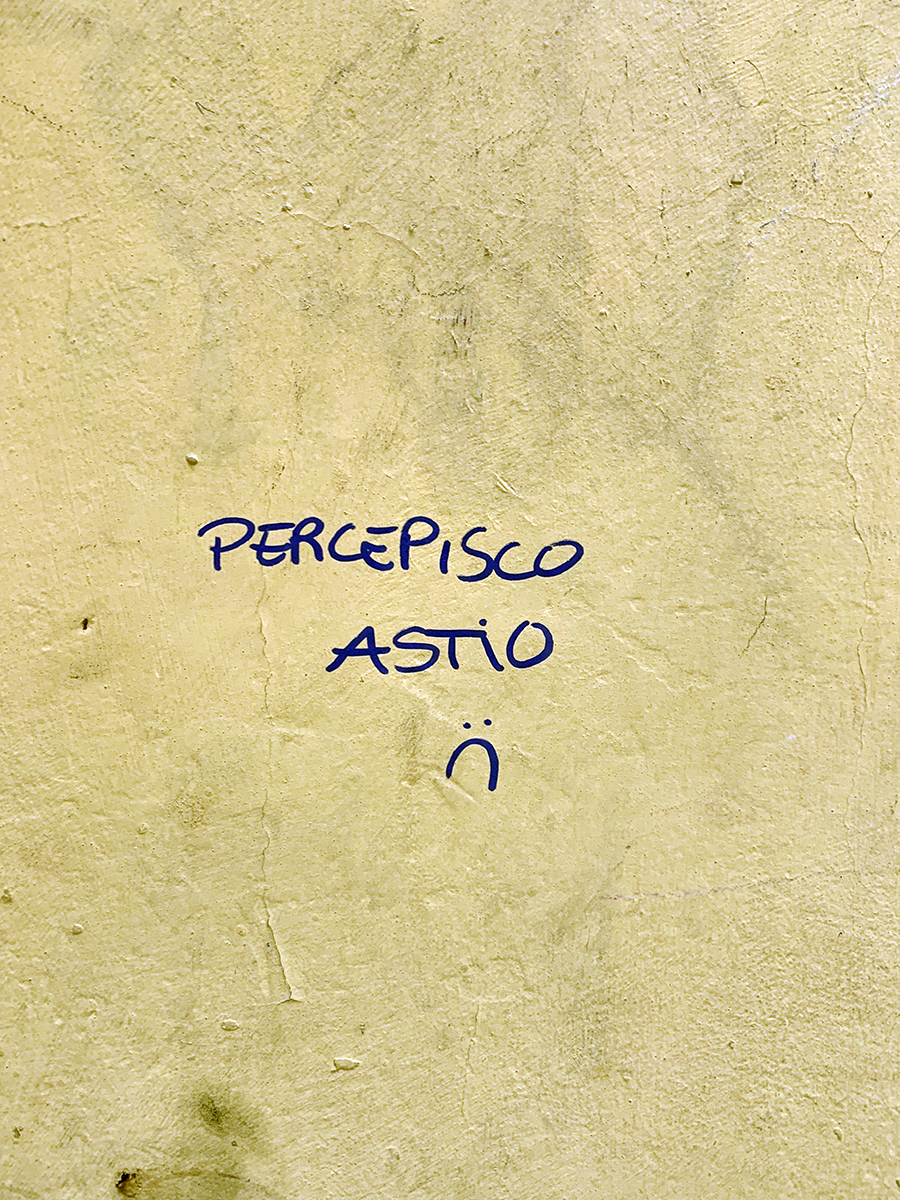 PERCEPISCO
ASTIO
:(